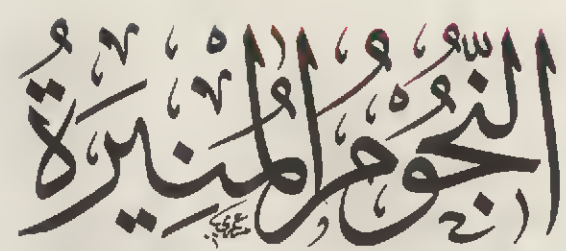 النُّجُومُ المُنِيرَةُ